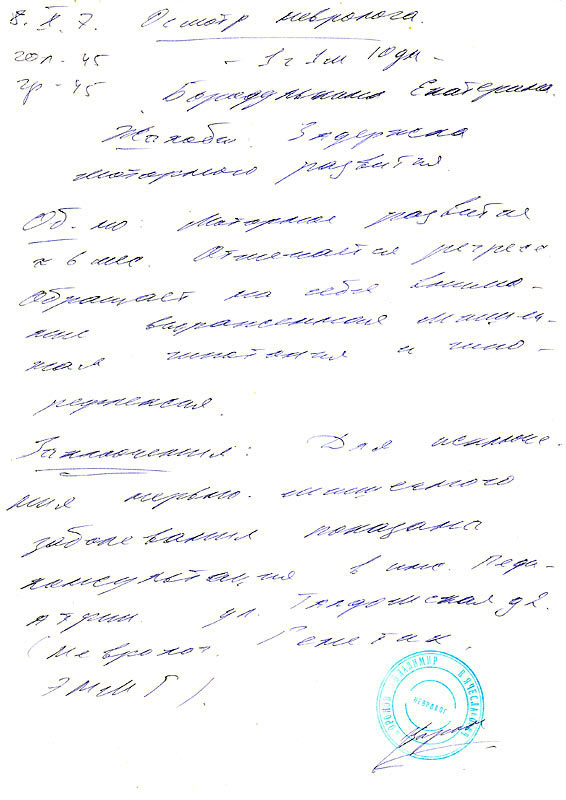 8. X. 7. Осмотр невролога.
гол - 45 - 1 г 1 м 10 дн -
гр - 45 Екатерина
Жалобы: Задержка
моторного развития.
Об-но: Моторное развитие
6 мес. Отмечается регресс.
Обращает на себя внима-
ние выраженная мышеч-
ная гипотония и гипо-
рефлексия.
Заключения: Для исключе-
ния нервно-мышечного
заболевания показана
консультация в инс. Педи-
атрии. ул. Талдомская д 2.
(Невролог. Генетик,
ЭМГ).
ВЛАДИМИР ВЯЧЕСЛАВОВИЧ
НЕВРОЛОГ